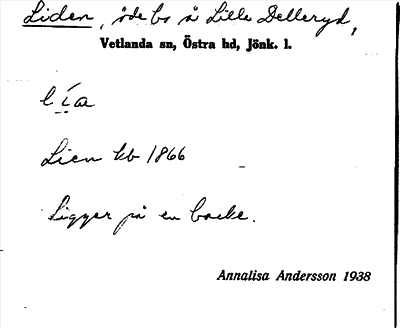 Liden, öde bs å Lilla Delleryd,
Vetlanda sn, Östra hd, Jönk. l.
lia
Lien kb 1866
Ligger på en backe.
Annalisa Andersson 1938